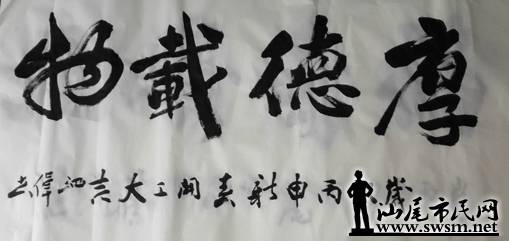 厚德載物
歲丙申新春開工大吉
汕尾市民网
www.swsm.net